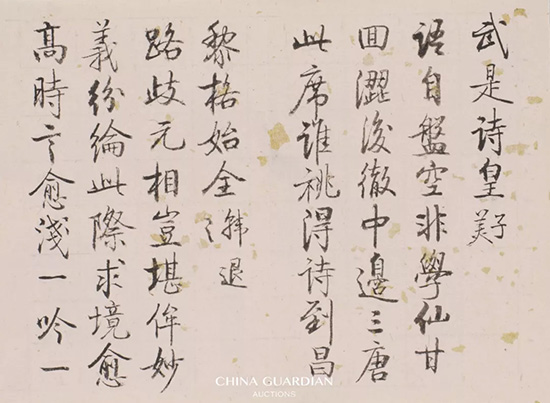 武是诗皇 美子
语自盤空非學仙甘
回澀後徹中邊三唐
此席誰祧得诗到昌
黎格始全 韩退之
路歧元相豈堪侔妙
義紛綸此際求境愈
高時言愈淺一吟一
CHINA GUARDIAN
AUCTIONS